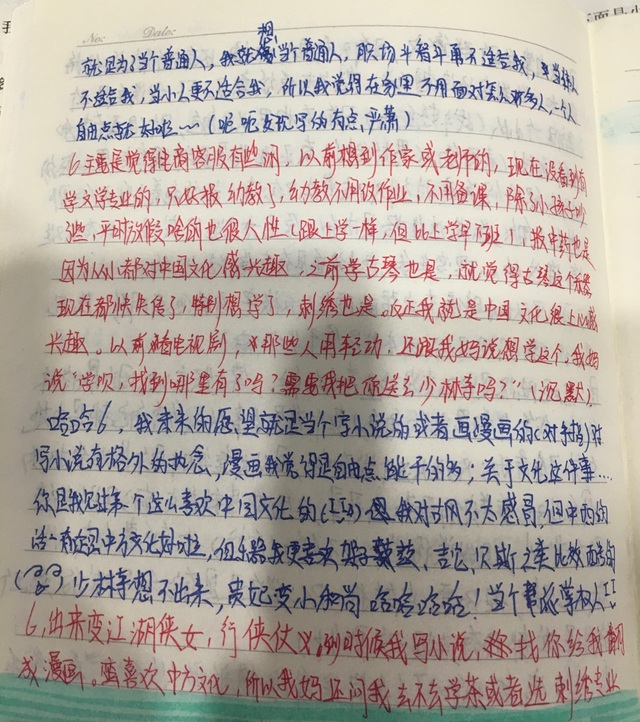 No: Date:
想
就是为了当个普通人,我就当个普通人,职场斗智斗勇不适合我,当坏人
不适合我,当小人更不适合我,所以我觉得在家里不用面对那么多人,一个人
自由点就好啦~~(呃呃发现写的有点严肃)
6.主要是觉得电商客服有些闲,以前想到作家或老师的,现在没看到有
学文学专业的,只好报幼教了,幼教不用改作业,不用备课,除了小孩子吵
些,平时放假啥的也很人性(跟上学一样,但比上学早下班),报中药也是
因为从小都对中国文化感兴趣,之前学古琴也是,就觉得古琴这个乐器
现在都快失传了,特别想学了,刺绣也是。反正我就是中国文化很上心感
兴趣。以前看电视剧,那些人用轻功,还跟我妈说想学这个。我妈
说"学呗,找到哪里有了吗?需要我把你送去少林寺吗?"(沉默)
哈哈6,我未来的愿望就是当个写小说的或者画漫画的(对手指)对
写小说有格外的执念,漫画我觉得是自由点能干的多;关于文化这件事…
你是我见过第一个这么喜欢中国文化的 我对古风不太感冒,但中西的
话一定是中方文化好啦,但乐器我更喜欢架子鼓、吉它、贝斯之类比较酷的
少林寺想不出来,贵妃变小和尚哈哈哈哈!当个帮派掌权人
6,出来变江湖侠女,行侠仗义,到时候我写小说,找你给我翻
成漫画。喜欢中方文化,所以我妈还问我去不去学茶或者选刺绣专业